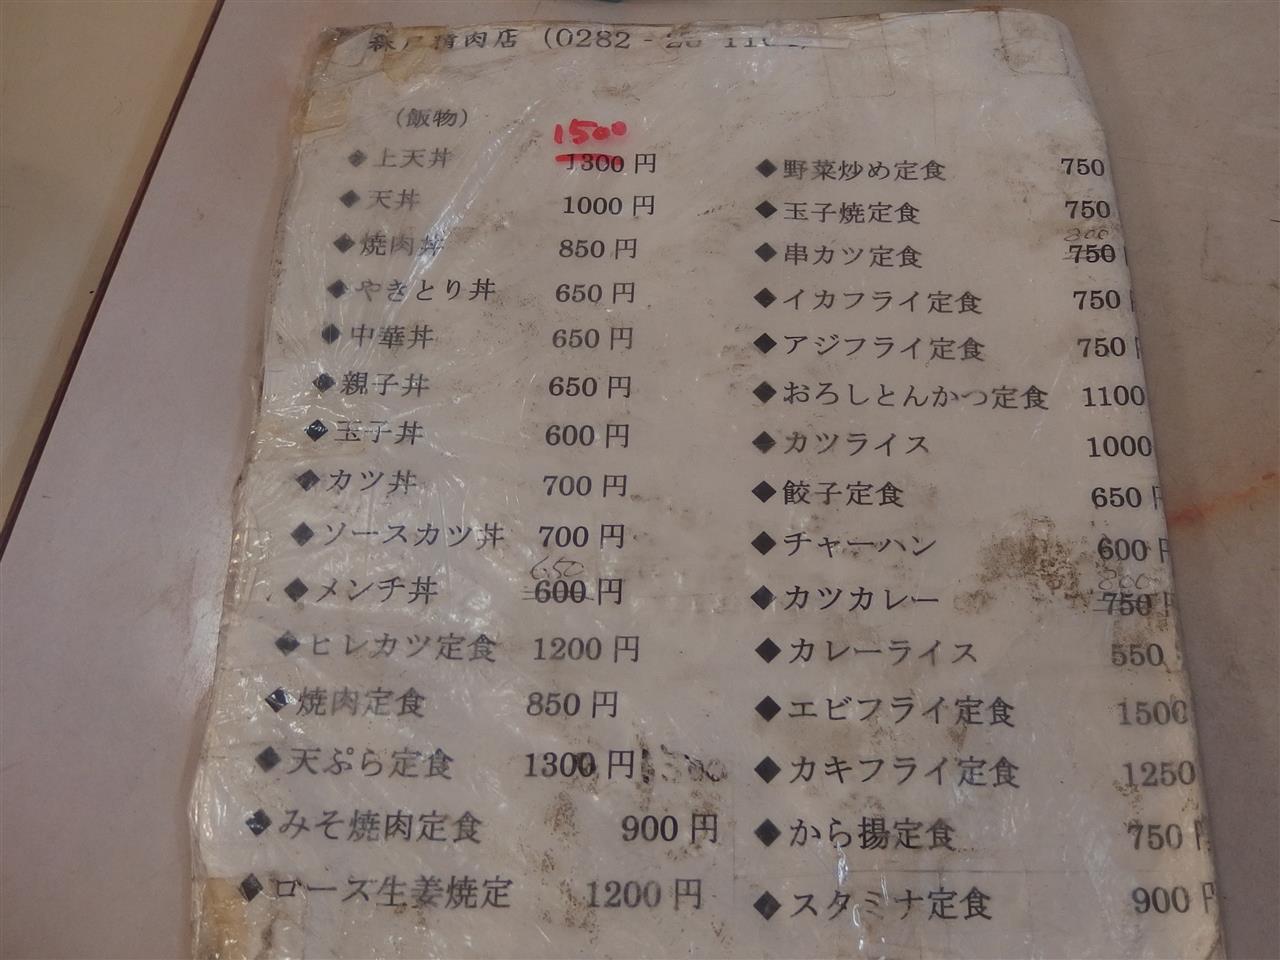 森戸精肉店（0282-
（飯物）
1500
◆上天丼 1300円
◆天丼 1000円
◆焼肉丼 850円
◆やきとり丼 650円
◆中華丼 650円
◆親子丼 650円
◆玉子丼 600円
◆カツ丼 700円
◆ソースカツ丼 700円
650
◆メンチ丼 600円
◆ヒレカツ定食 1200円
◆焼肉定食 850円
◆天ぷら定食 1300円 1300
◆みそ焼肉定食 900円
◆ロース生姜焼定 1200円
◆野菜炒め定食 750
◆玉子焼定食 750
800
◆串カツ定食 750
◆イカフライ定食 750
◆アジフライ定食 750
◆おろしとんかつ定食 1100
◆カツライス 1000
◆餃子定食 650円
◆チャーハン 600円
800
◆カツカレー 750
◆カレーライス 550
◆エビフライ定食 1500
◆カキフライ定食 1250
◆から揚定食 750円
◆スタミナ定食 900円